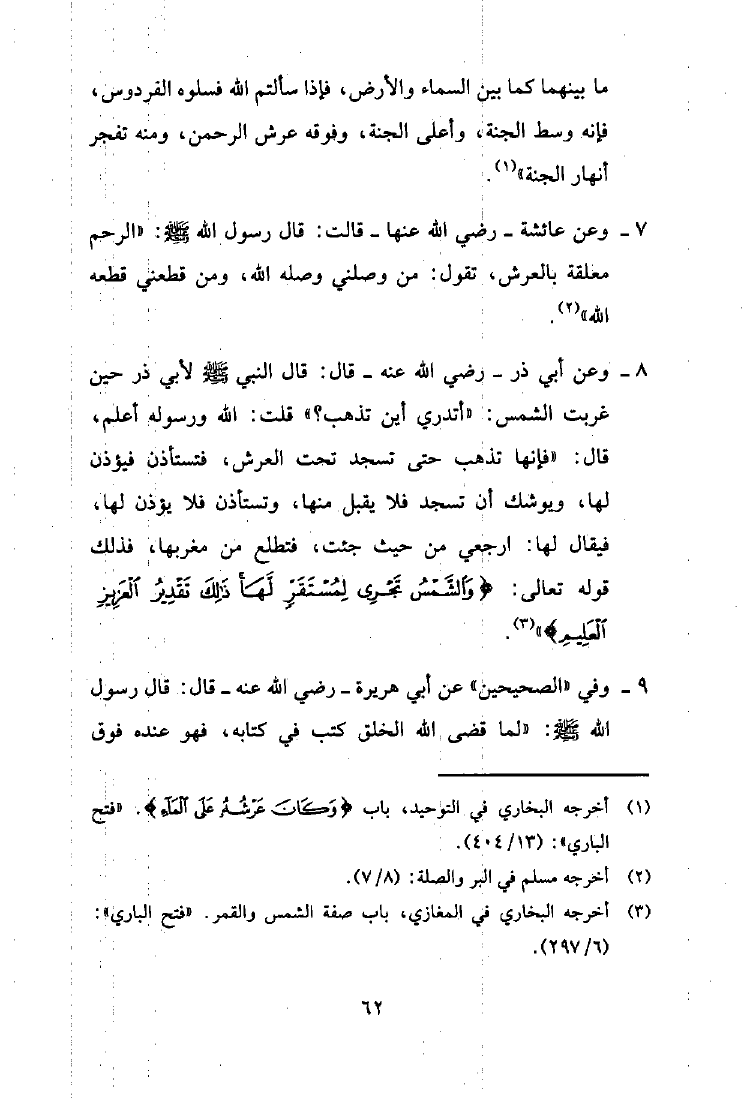 ما بينهما كما بين السماء والأرض، فإذا سألتم الله فسلوه الفردوس،
فإنه وسط الجنة، وأعلى الجنة، وفوقه عرش الرحمن، ومنه تفجر
أنهار الجنة»(١).
٧ ـ وعن عائشة ـ رضي الله عنها ـ قالت: قال رسول الله ﷺ: «الرحم
معلقة بالعرش، تقول: من وصلني وصله الله، ومن قطعني قطعه
الله»(٢).
٨ ـ وعن أبي ذر ـ رضي الله عنه ـ قال: قال النبي ﷺ لأبي ذر حين
غربت الشمس: «أتدري أين تذهب؟» قلت: الله ورسوله أعلم،
قال: «فإنها تذهب حتى تسجد تحت العرش، فتستأذن فيؤذن
لها، ويوشك أن تسجد فلا يقبل منها، وتستأذن فلا يؤذن لها،
فيقال لها: ارجعي من حيث جئت، فتطلع من مغربها، فذلك
قوله تعالى: ﴿وَٱلشَّمْسُ تَجْرِى لِمُسْتَقَرٍّ لَّهَا ذَٰلِكَ تَقْدِيرُ ٱلْعَزِيزِ
ٱلْعَلِيمِ﴾»(٣).
٩ ـ وفي «الصحيحين» عن أبي هريرة ـ رضي الله عنه ـ قال: قال رسول
الله ﷺ: «لما قضى الله الخلق كتب في كتابه، فهو عنده فوق
(١) أخرجه البخاري في التوحيد، باب ﴿وَكَانَ عَرْشُهُ عَلَى ٱلْمَآءِ﴾. «فتح
الباري»: (٤٠٤/١٣).
(٢) أخرجه مسلم في البر والصلة: (٧/٨).
(٣) أخرجه البخاري في المغازي، باب صفة الشمس والقمر. «فتح الباري»:
(٢٩٧/٦).
٦٢